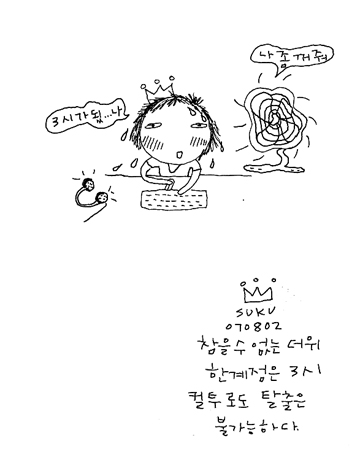 나 좀 꺼줘
3시가 됬...나
SUKU
070802
참을수 없는 더위
한계점은 3시
컬투로도 탈출은
불가능하다.